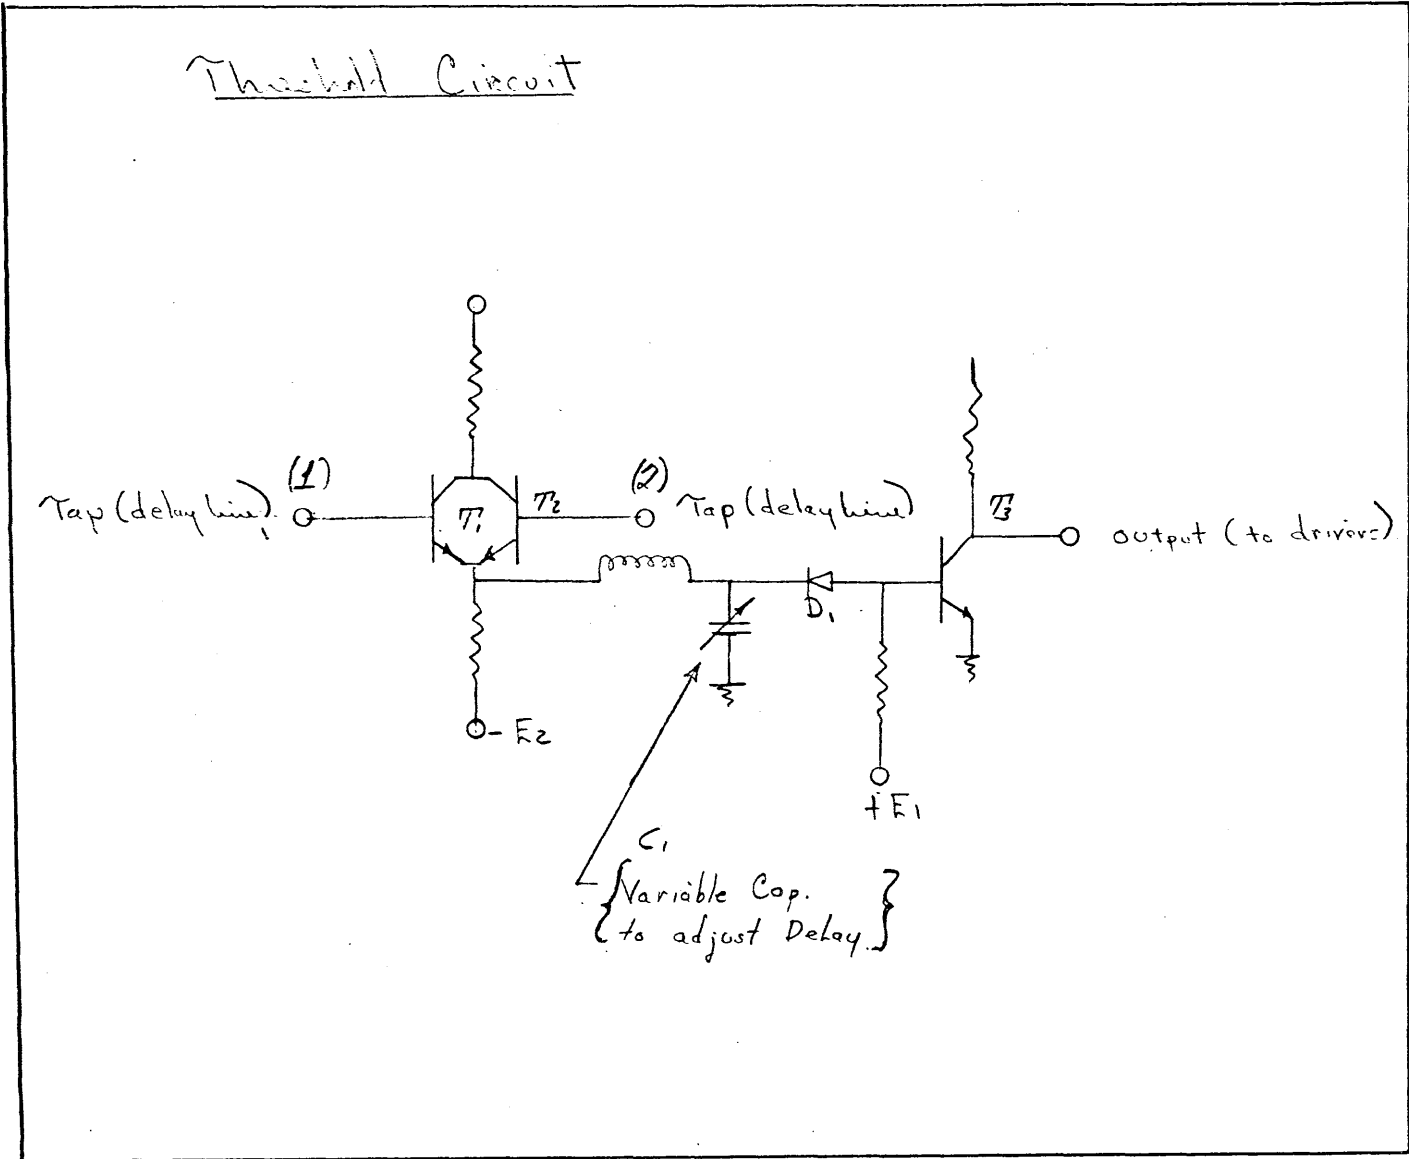 Threshold Circuit
(1)
Tap (delay line)
T1
T2
(2)
Tap (delay line)
T3
output (to drivers)
D1
- E2
+ E1
C1
{Variable Cap.
to adjust Delay.}